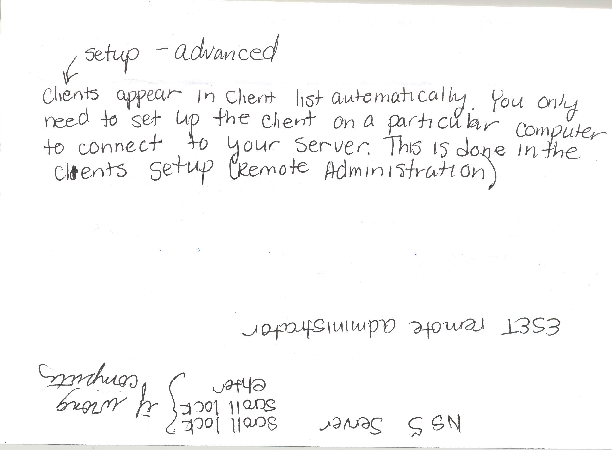 setup - advanced
Clients appear in client list automatically. You only
need to set up the client on a particular computer
to connect to your server. This is done in the
clients setup (Remote Administration)
NSS Server
scroll lock
scroll lock
enter
} if wrong
computer
ESET remote administrator